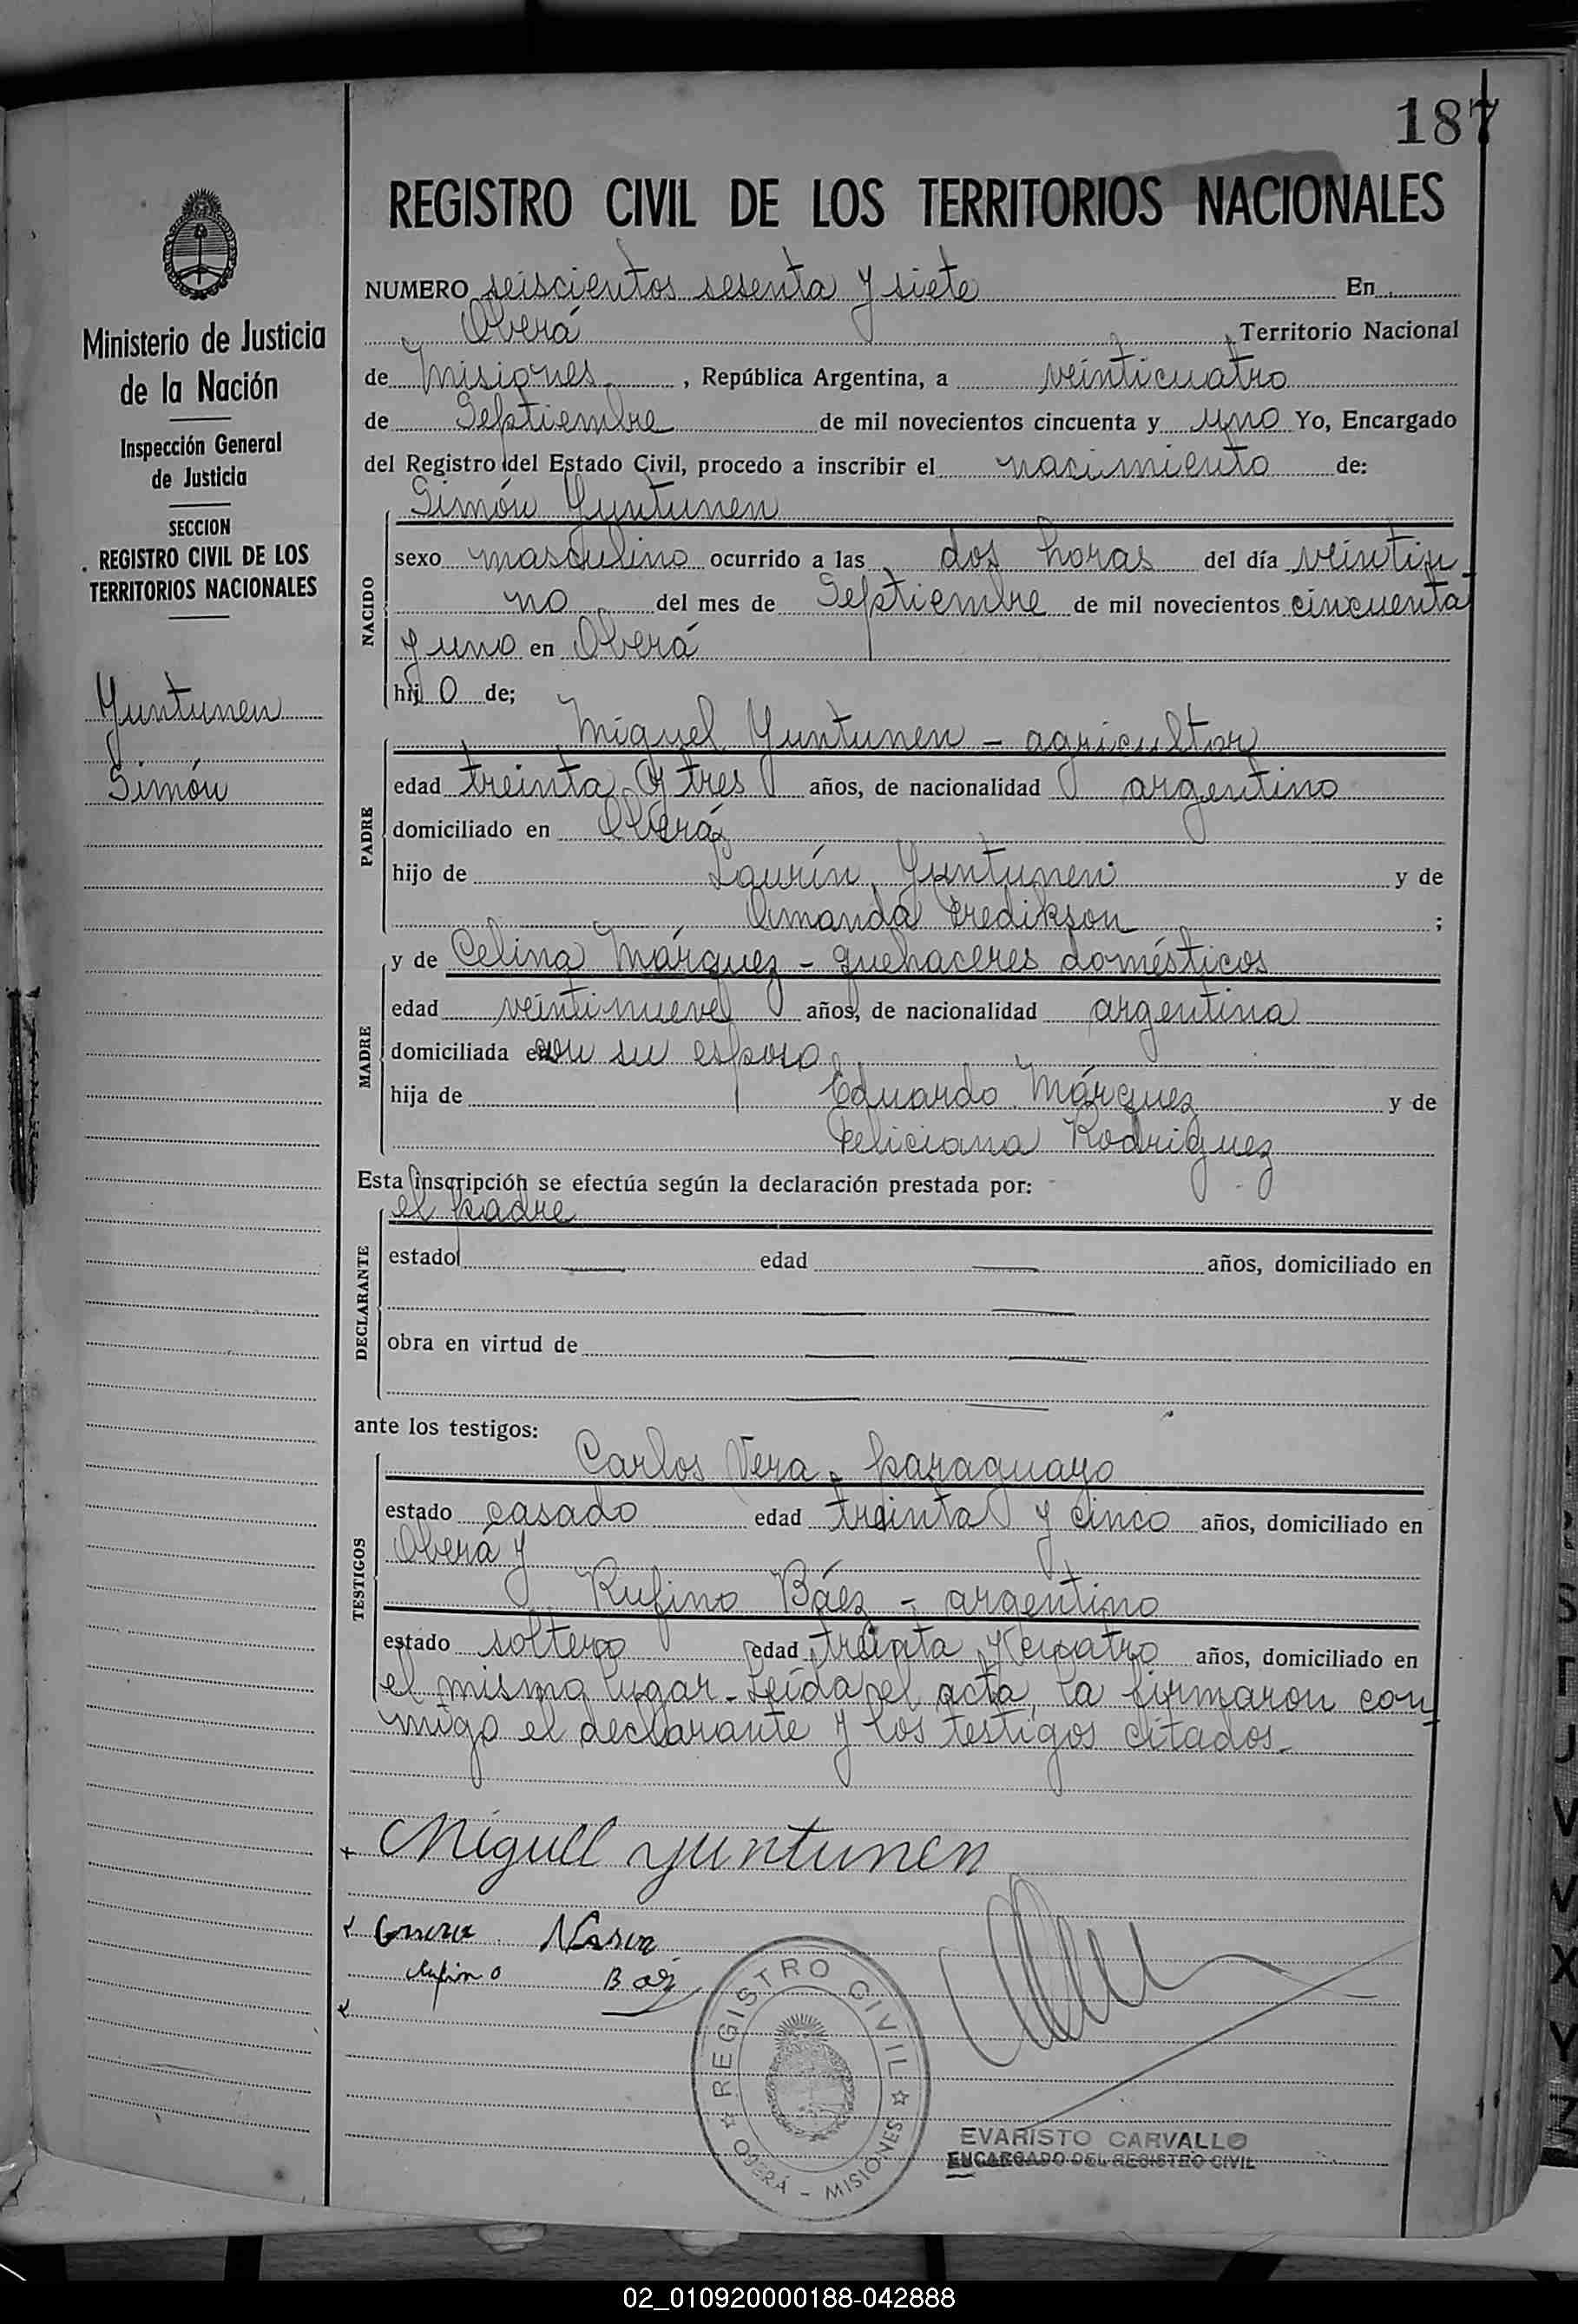 187
REGISTRO CIVIL DE LOS TERRITORIOS NACIONALES
Ministerio de Justicia
de la Nación
Inspección General
de Justicia
SECCION
REGISTRO CIVIL DE LOS
TERRITORIOS NACIONALES
Yuntunen
Simón
NUMERO seiscientos sesenta y siete En
Oberá Territorio Nacional
de Misiones , República Argentina, a veinticuatro
de Septiembre de mil novecientos cincuenta y uno Yo, Encargado
del Registro del Estado Civil, procedo a inscribir el nacimiento de:
Simón Yuntunen
NACIDO
sexo masculino ocurrido a las dos horas del día veintiu-
no del mes de Septiembre de mil novecientos cincuenta
y uno en Oberá
hij o de;
Miguel Yuntunen - agricultor
PADRE
edad treinta y tres años, de nacionalidad argentino
domiciliado en Oberá
hijo de Laurín Yuntunen y de
Amanda Fredikson ;
y de Celina Márquez - quehaceres domésticos
MADRE
edad veintinueve años, de nacionalidad argentina
domiciliada en con su esposo
hija de Eduardo Márquez y de
Feliciana Rodriguez
Esta inscripción se efectúa según la declaración prestada por:
el padre
DECLARANTE
estado — edad — años, domiciliado en
— —
obra en virtud de — —
— —
ante los testigos:
Carlos Vera - paraguayo
TESTIGOS
estado casado edad treinta y cinco años, domiciliado en
Oberá y
Rufino Báez - argentino
estado soltero edad treinta y cuatro años, domiciliado en
el mismo lugar - Leída el acta, la firmaron con-
migo el declarante y los testigos citados-
Miguel Yuntunen
Rufino Báez
REGISTRO CIVIL
OBERÁ - MISIONES
EVARISTO CARVALLO
ENCARGADO DEL REGISTRO CIVIL
S
T
J
V
V
X
Y
Z
02_010920000188-042888